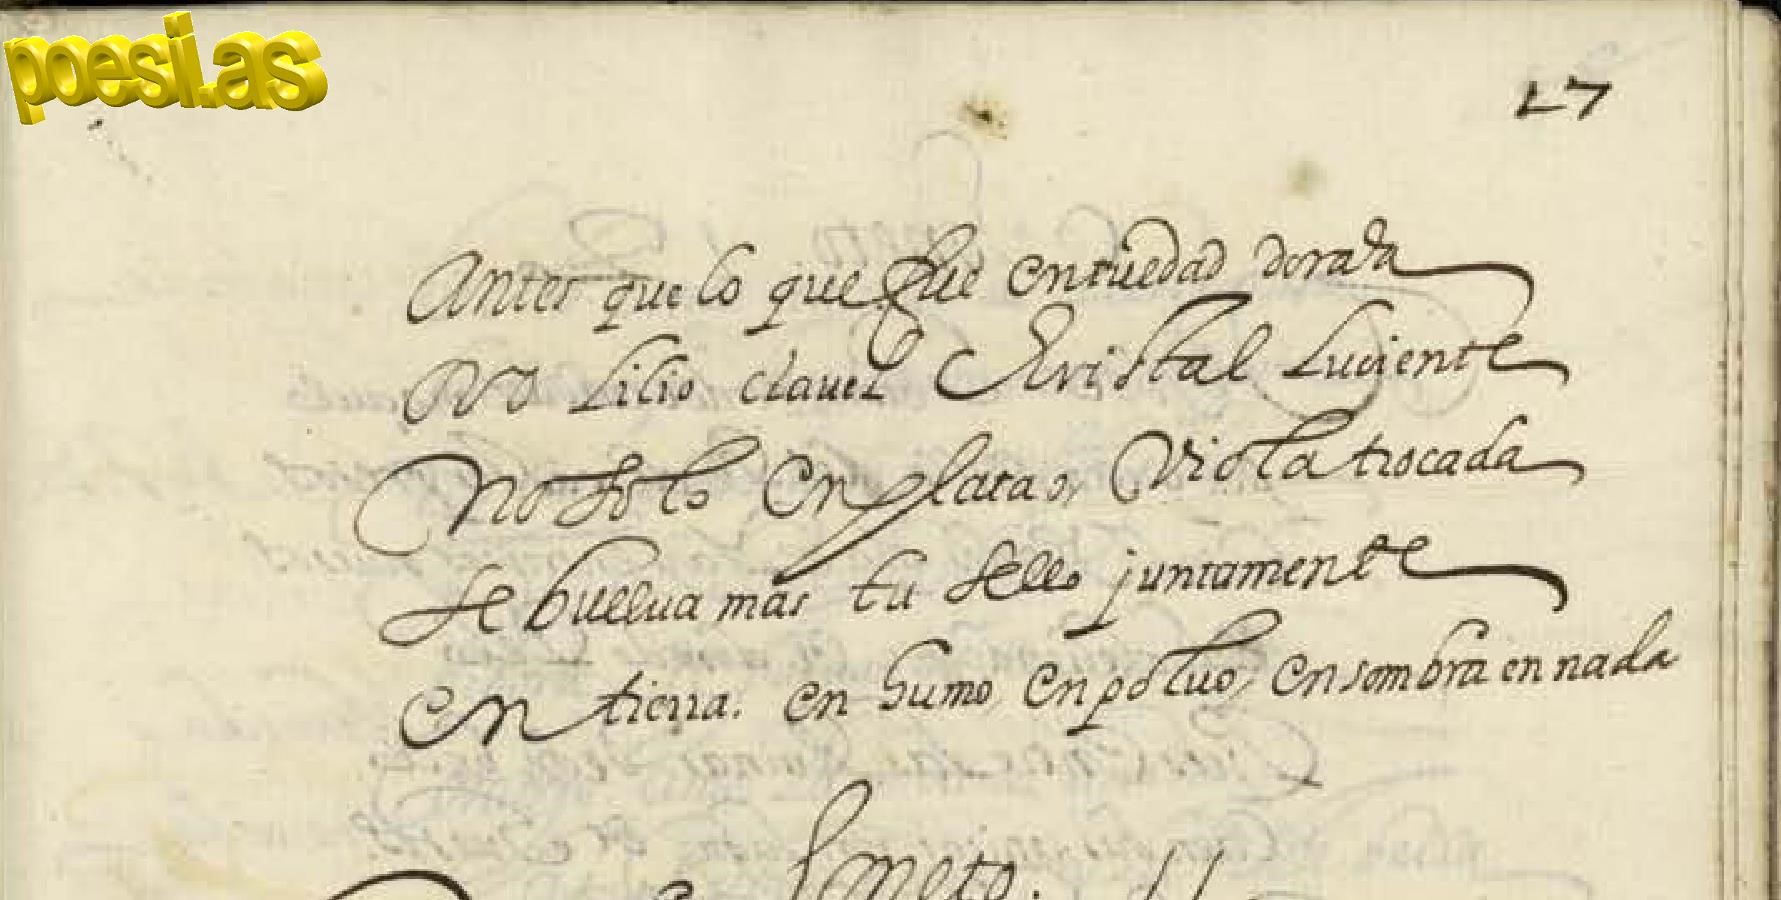 poesi.as
27
Antes que lo que fue entu edad dorada
Oro Lilio clauel Christal Luciente
No solo En plata o, Viola trocada
se buelua mas tu sello juntamente
En tierra. en humo, En poluo, En sombra en nada
Soneto.